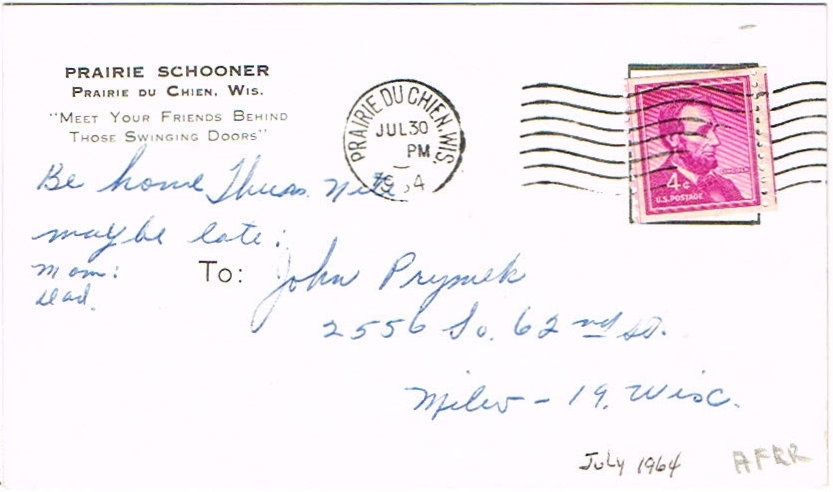 PRAIRIE SCHOONER
PRAIRIE DU CHIEN, WIS.
"MEET YOUR FRIENDS BEHIND
THOSE SWINGING DOORS"
PRAIRIE DU CHIEN, WIS.
JUL 30
PM
4¢
U.S. POSTAGE
Be home Thurs. Nite
maybe late:
Mom:
Dad.
To: John Prymek
2556 So. 62nd St.
Milw - 19, Wisc.
July 1964
AFRR